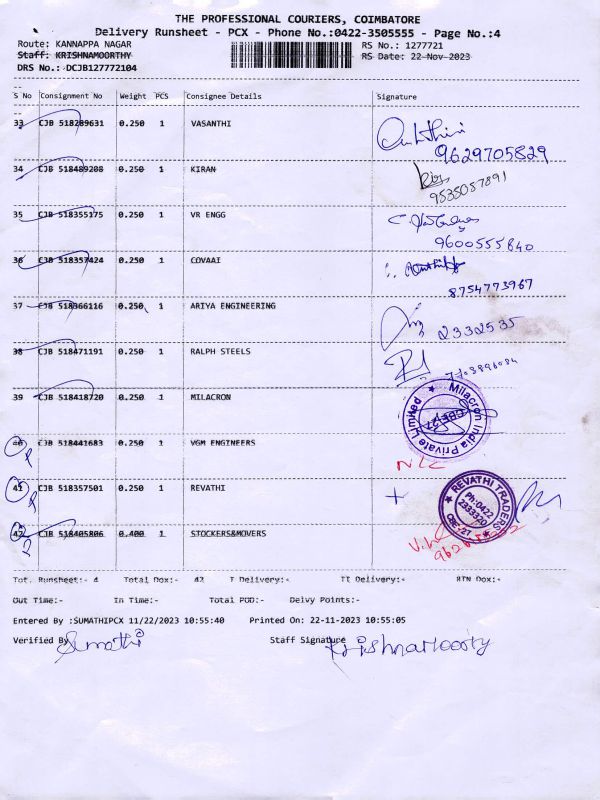 THE PROFESSIONAL COURIERS, COIMBATORE
Delivery Runsheet - PCX - Phone No.:0422-3505555 - Page No.:4
Route: KANNAPPA NAGAR RS No.: 1277721
Staff: KRISHNAMOORTHY RS Date: 22-Nov-2023
DRS No.: DCJB127772104
S No Consignment No Weight PCS Consignee Details Signature
33 CJB 518289631 0.250 1 VASANTHI
9629705829
34 CJB 518489208 0.250 1 KIRAN
9535057891
35 CJB 518355175 0.250 1 VR ENGG
9600555840
36 CJB 518357424 0.250 1 COVAAI
8754773967
37 CJB 518366116 0.250 1 ARIYA ENGINEERING
2332535
38 CJB 518471191 0.250 1 RALPH STEELS
39 CJB 518418720 0.250 1 MILACRON
Milacron India Private Limited
CBE-27
40 CJB 518441683 0.250 1 VGM ENGINEERS
41 CJB 518357501 0.250 1 REVATHI
REVATHI TRADERS
Ph:0422
2333320
CBE-27
42 CJB 518405806 0.400 1 STOCKERS&MOVERS
Tot. Runsheet:- 4 Total Dox:- 42 T Delivery:- TT Delivery:- RTN Dox:-
Out Time:- In Time:- Total POD:- Delvy Points:-
Entered By :SUMATHIPCX 11/22/2023 10:55:40 Printed On: 22-11-2023 10:55:05
Verified By Sumathi Staff Signature Krishnamoorty